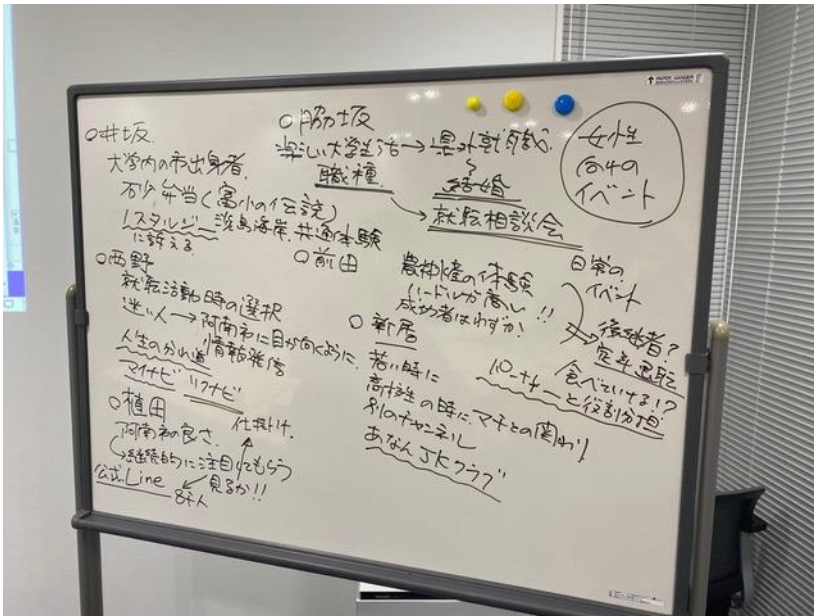 ○井坂
大学内の市出身者
弁当(富小の伝説)
ノスタルジー 淡島海岸 共通体験
に訴える
○西野
就転活動時の選択
迷い人→阿南市に目が向くように
情報発信
人生の分れ道
マイナビ リクナビ
仕掛け
○植田
阿南市の良さ
継続的に注目してもらう
見るか!!
公式Line 8千人
○脇坂
楽しい大学生活→県外就職
職種
結婚
就転相談会
○前田
農林水産の体験
ハードルが高い!!
成功者はわずか!
○新居
若い時に
高校生の時に、マチとの関わり
別のチャンネル
あなんJKクラブ
女性
向けの
イベント
日常の
イベント
後継者?
定年退職
食べていける!?
パートナーと役割分担